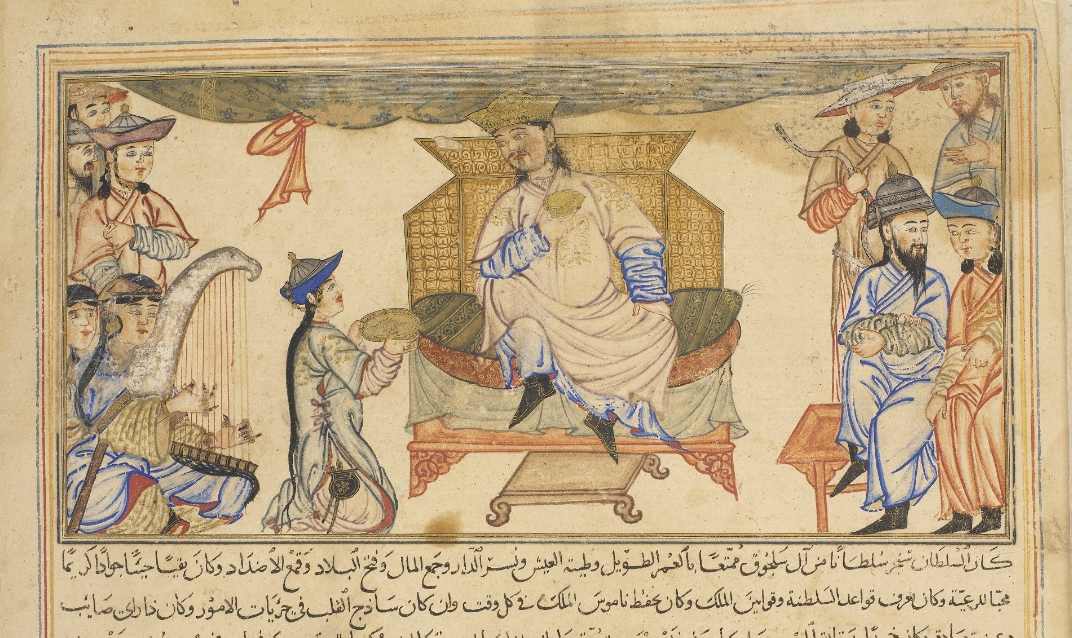 كان السلطان سنجر سلطانا من آل سلجوق ممتعا بالعمر الطويل وطيبة العيش وتيسر الدار وجمع المال وفتح البلاد وقمع الاضداد وكان نقيا حييا جوادا كريما
محبا للرعية وكان يعرف قواعد السلطنة وقوانين الملك وكان يحفظ ناموس الملك في كل وقت وان كان ساذج القلب في جزئيات الامور وكان ذا راى صايب